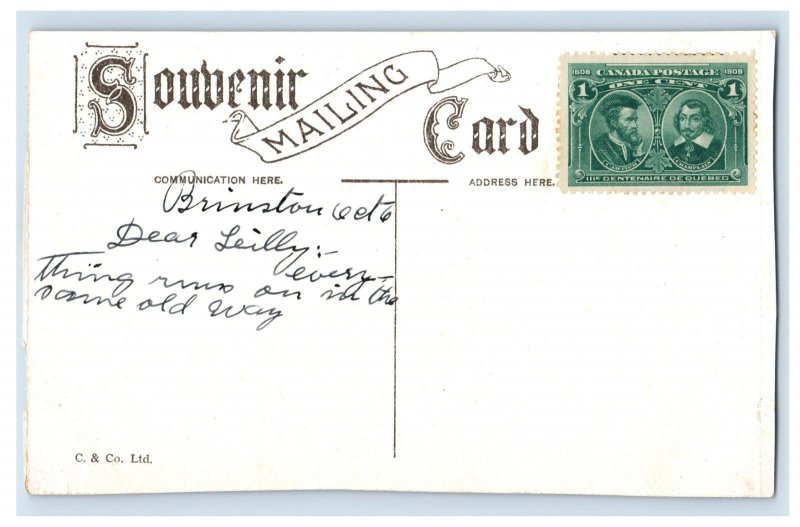 Souvenir
MAILING
Card
1608 CANADA POSTAGE 1908
ONE CENT
1 1
CARTIER CHAMPLAIN
IIIe CENTENAIRE DE QUÉBEC
COMMUNICATION HERE.
ADDRESS HERE.
Brinston Oct 6
Dear Leilly:-
every-
thing runs on in the
same old way
C. & Co. Ltd.